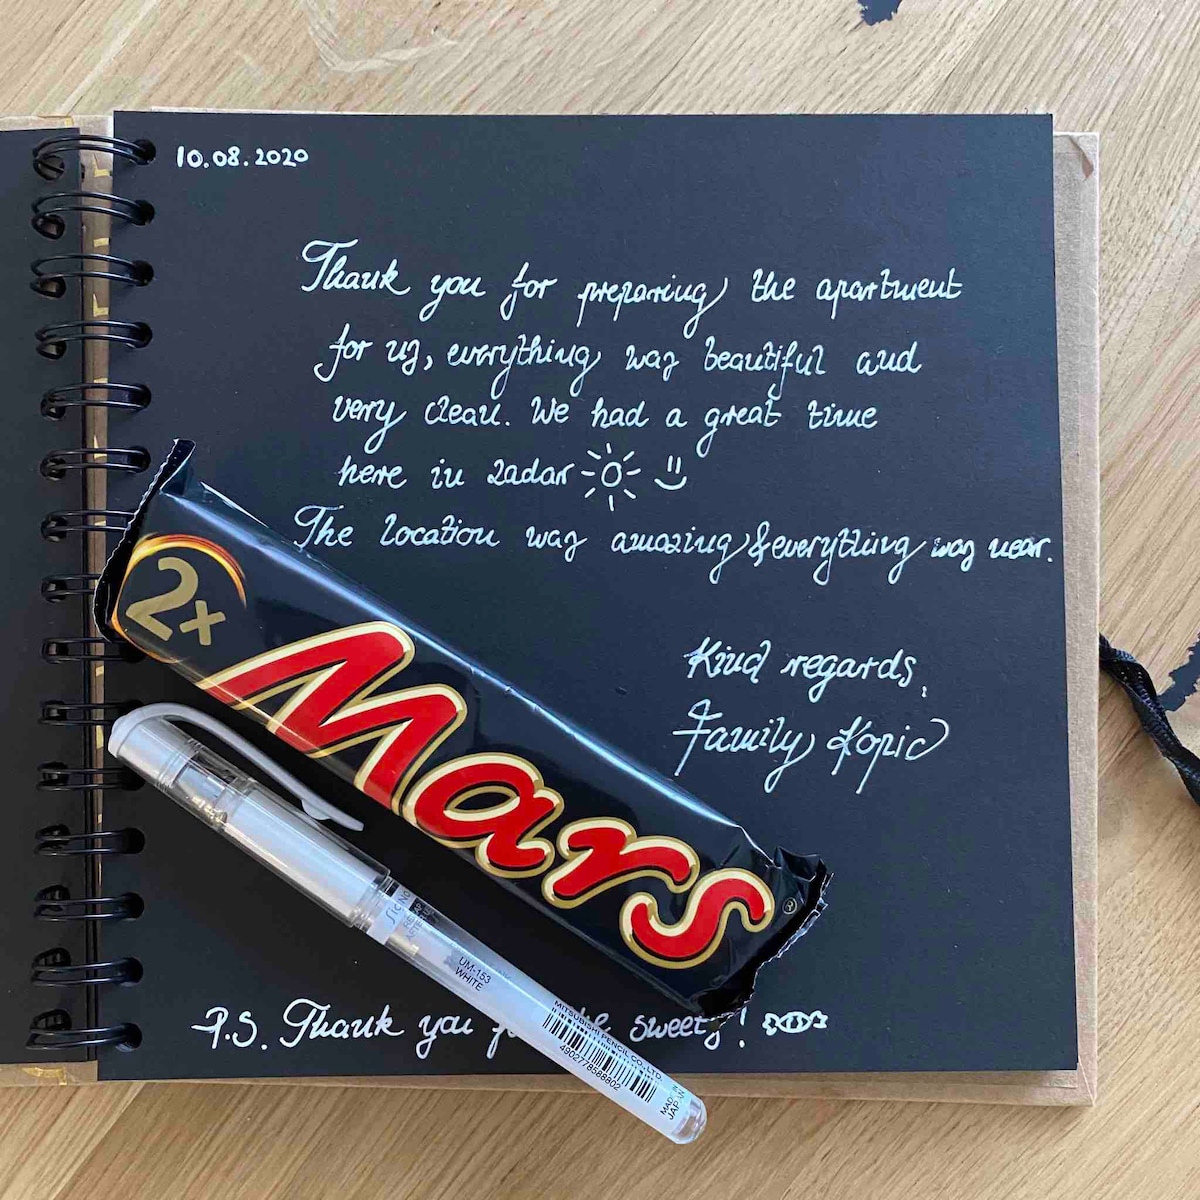 10.08.2020
Thank you for preparing the apartment
for us, everything was beautiful and
very clean. We had a great time
here in Zadar
The location was amazing & everything was near.
Kind regards,
Family Kopic
2x
Mars
signo
UM-153
WHITE
MITSUBISHI PENCIL CO., LTD.
4902778588802
MADE IN
JAPAN
P.S. Thank you the sweets!